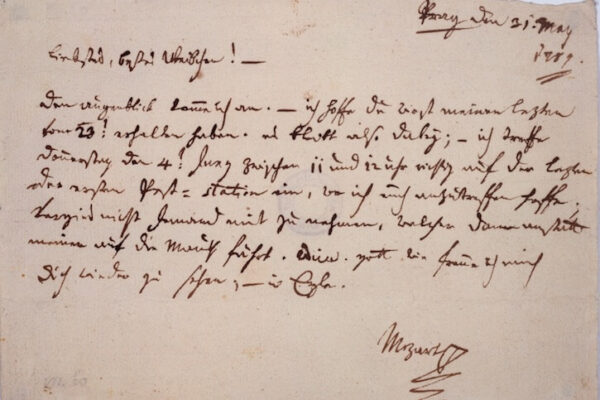 Prag den 31:t May
1789.
Liebstes, bestes Weibchen! —
den augenblick komme ich an. — ich hoffe du wirst meinen letzten
vom 23:t erhalten haben. es bleibt also dabey; — ich treffe
Donnerstag den 4:t Juny zwischen 11 und 12 uhr richtig auf der letzten
oder ersten Post=station ein, wo ich euch anzutreffen hoffe.
vergiss nicht Jemand mit zu nehmen, welcher dann anstatt
meiner auf die Mauth fährt. adieu. gott wie freue ich mich
dich wieder zu sehen; — in Eyle.
Mozart